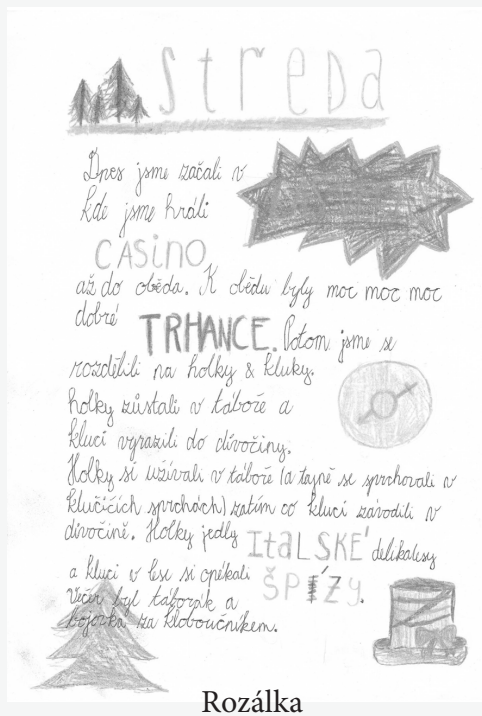 streDa
Dnes jsme začali v
kde jsme hráli
CASiNO
až do oběda. K obědu byly moc moc moc
dobré TRHANCE. Potom jsme se
rozdělili na holky & kluky.
holky zůstali v táboře a
kluci vyrazili do divočiny.
Holky si užívali v táboře (a tajně se sprchovali v
klučičích sprchách) zatím co kluci závodili v
divočině. Holky jedly ItaLSKÉ delikatesy
a kluci v lese si opékali ŠPÍZy.
Večer byl táborák a
bojovka za kloboučníkem.
Rozálka